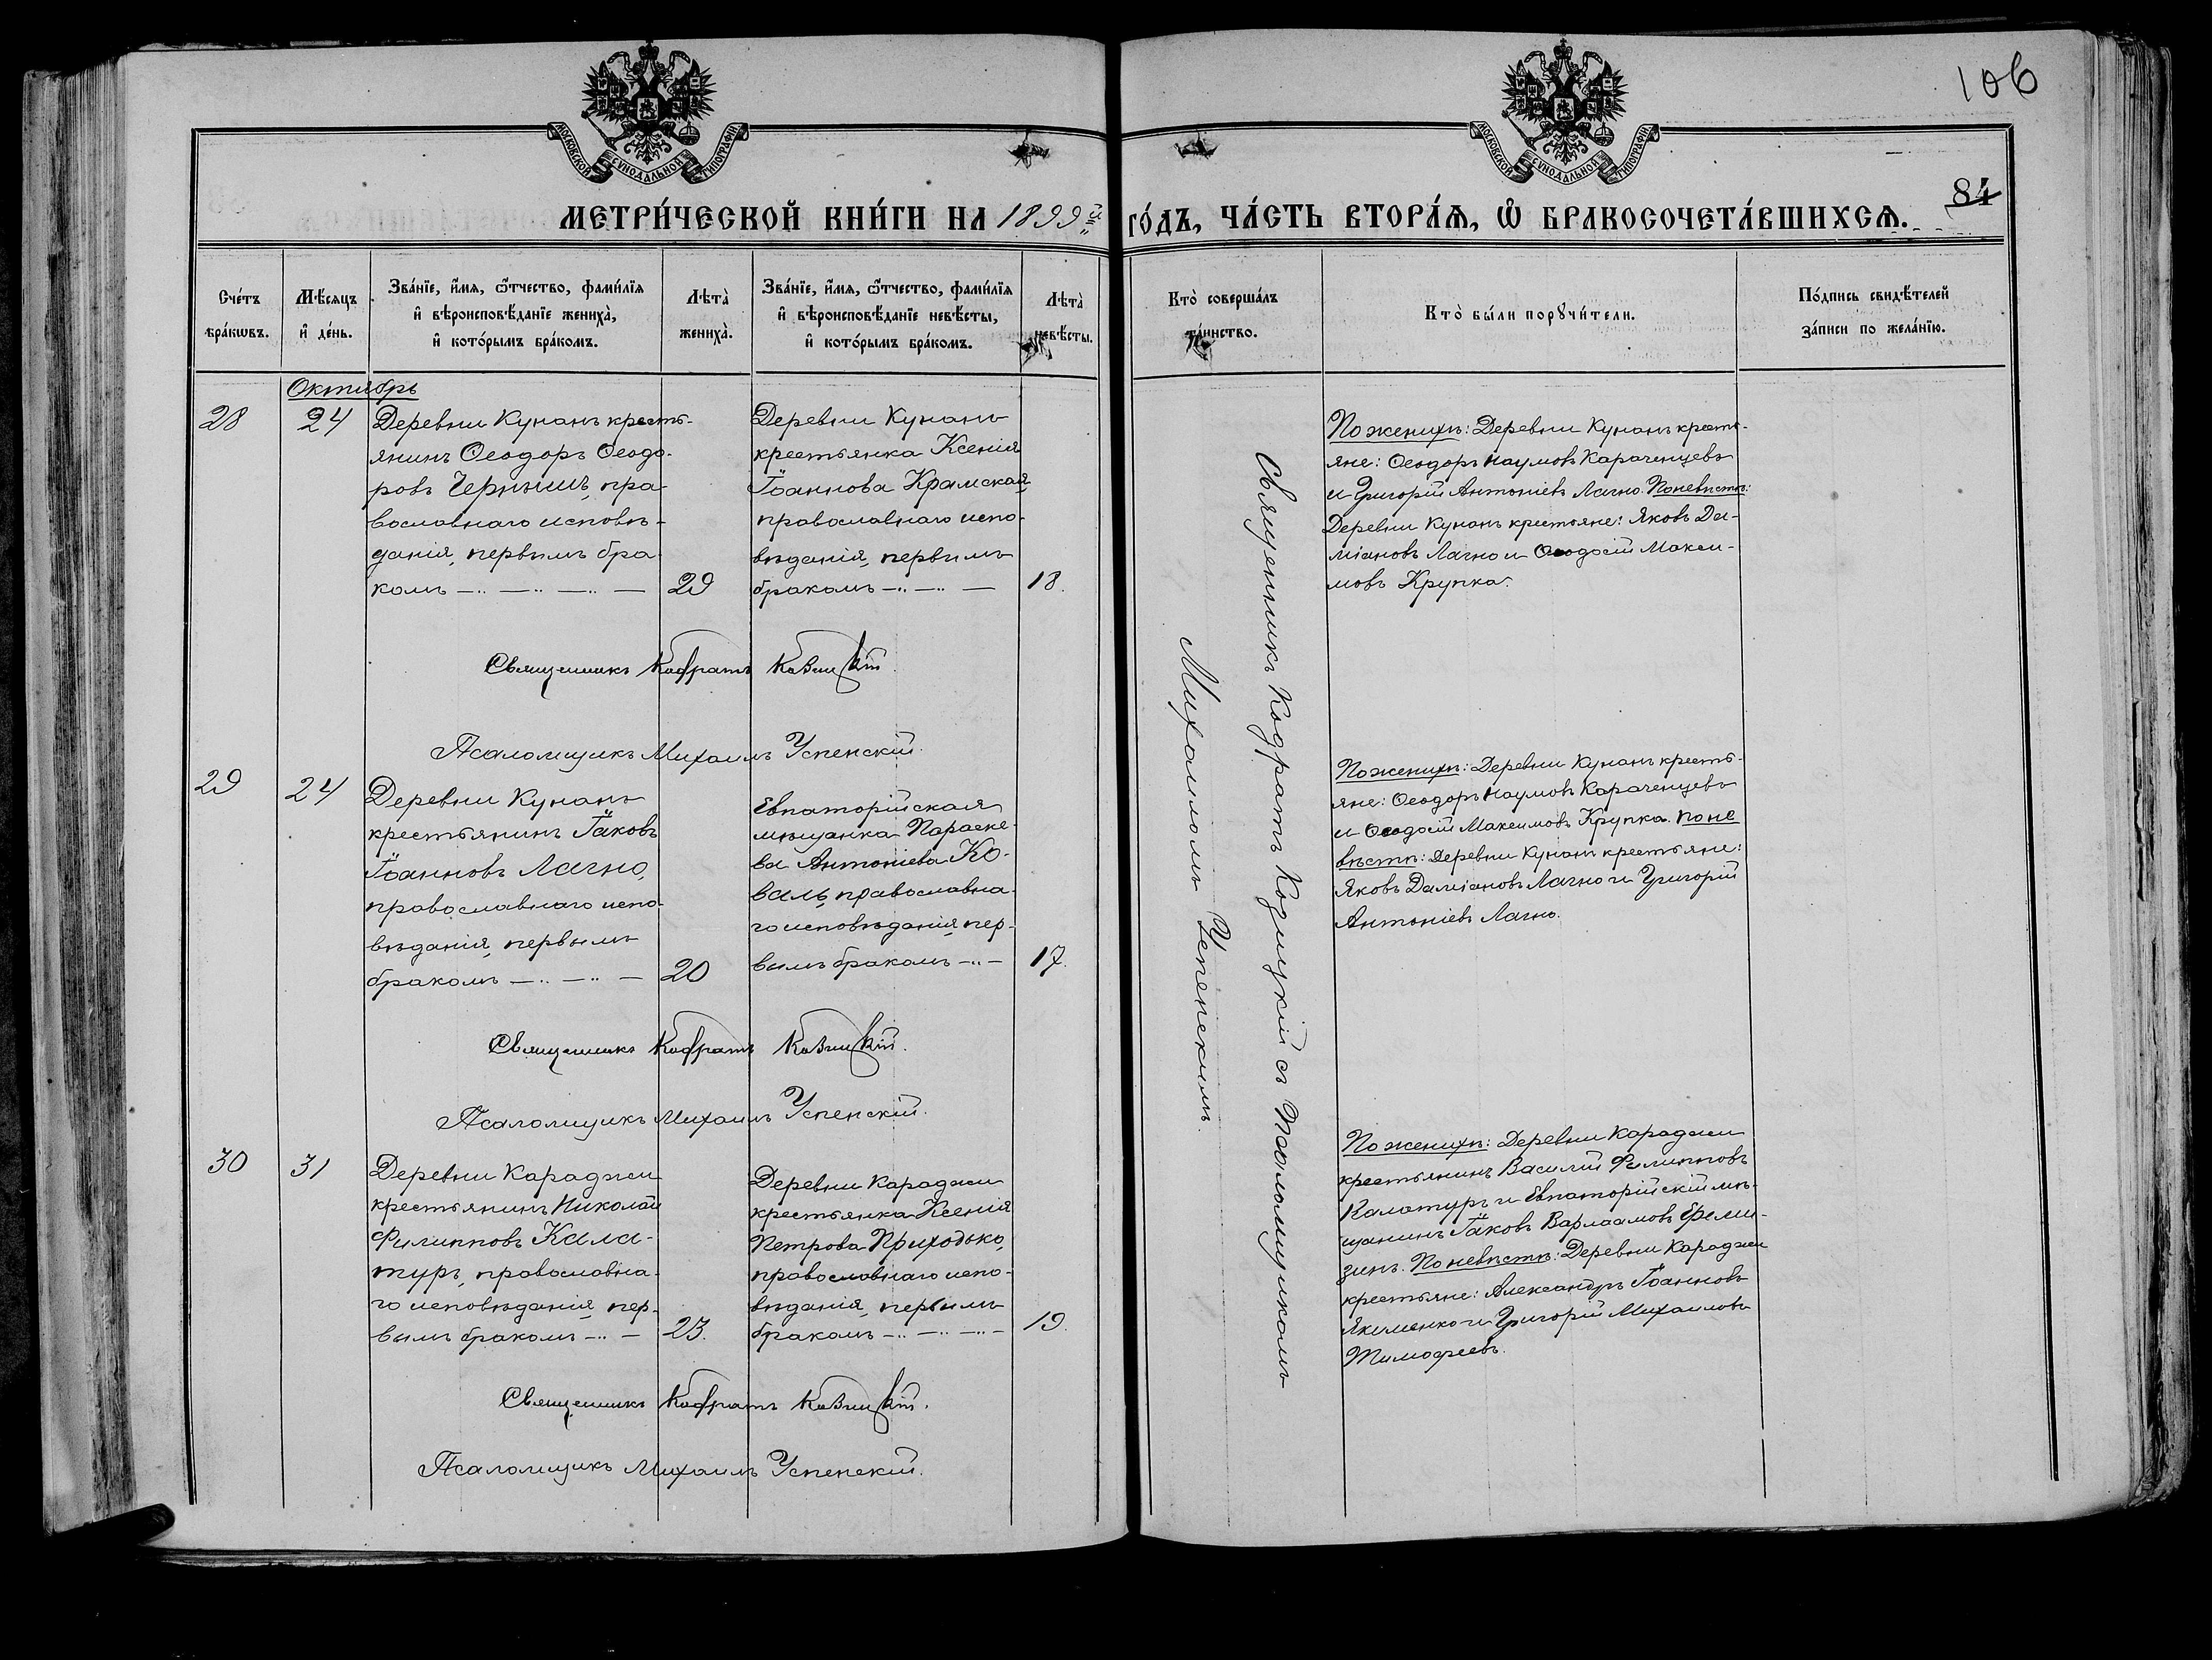 106
МОСКОВСКОЙ СѴНОДАЛЬНОЙ ТИПОГРАФІИ
МОСКОВСКОЙ СѴНОДАЛЬНОЙ ТИПОГРАФІИ
84
МЕТРИ́ЧЕСКОЙ КНИ́ГИ НА 1899й
ГО́ДЪ, ЧА́СТЬ ВТОРА́Я, Ѽ БРАКОСОЧЕТА́ВШИХСЯ.
Сче́тъ бра́кѡвъ.
Мѣ́сяцъ и де́нь.
Зва́нїе, и́мя, ѻ҆́тчество, фами́лїя и вѣроисповѣ́данїе жениха̀, и кото́рымъ бра́комъ.
Лѣта̀ жениха̀.
Зва́нїе, и́мя, ѻ҆́тчество, фами́лїя и вѣроисповѣ́данїе невѣ́сты, и кото́рымъ бра́комъ.
Лѣта̀ невѣ́сты.
Кто̀ соверша́лъ та́инство.
Кто̀ бы́ли порꙋчи́тели.
По́дпись свидѣ́телей за́писи по жела́нїю.
Октябрь
28
24
Деревни Кунанъ кресть-
янинъ Ѳеодоръ Ѳеодо-
ровъ Чернышъ, пра-
вославнаго исповѣ-
данія, первымъ бра-
комъ
29
Деревни Кунанъ
крестьянка Ксенія
Іоаннова Крамская,
православнаго испо-
вѣданія, первымъ
бракомъ
18.
По женихѣ: Деревни Кунанъ кресть-
яне: Ѳеодоръ Наумовъ Караченцевъ
и Григорій Антоніевъ Лагно. По невѣстѣ:
Деревни Кунанъ крестьяне: Яковъ Да-
міановъ Лагно и Ѳеодосій Макси-
мовъ Крупка.
Священникъ Кодратъ Козицкій
Псаломщикъ Михаилъ Успенскій.
29
24
Деревни Кунанъ
крестьянинъ Іаковъ
Іоанновъ Лагно,
православнаго испо-
вѣданія, первымъ
бракомъ
20
Евпаторійская
мѣщанка Параске-
ва Антоніева Ко-
валь, православна-
го исповѣданія, пер-
вымъ бракомъ
17.
По женихѣ: Деревни Кунанъ кресть-
яне: Ѳеодоръ Наумовъ Караченцевъ
и Ѳеодосій Максимовъ Крупка. По не
вѣстѣ: Деревни Кунанъ крестьяне:
Яковъ Даміановъ Лагно и Григорій
Антоніевъ Лагно.
Священникъ Кодратъ Козицкій.
Псаломщикъ Михаилъ Успенскій.
30
31
Деревни Караджи
крестьянинъ Николай
Филипповъ Кала-
туръ, православна-
го исповѣданія, пер-
вымъ бракомъ
23.
Деревни Караджи
крестьянка Ксенія
Петрова Приходько,
православнаго испо-
вѣданія, первымъ
бракомъ
19.
По женихѣ: Деревни Караджи
крестьянинъ Василій Филипповъ
Калатуръ и Евпаторійскій мѣ-
щанинъ Іаковъ Варлаамовъ Ереми-
зинъ. По невѣстѣ: Деревни Караджи
крестьяне: Александръ Іоанновъ
Якименко и Григорій Михаиловъ
Тимофеевъ.
Священникъ Кодратъ Козицкій.
Псаломщикъ Михаилъ Успенскій.
Священникъ Кодратъ Козицкій съ Псаломщикомъ
Михаиломъ Успенскимъ.